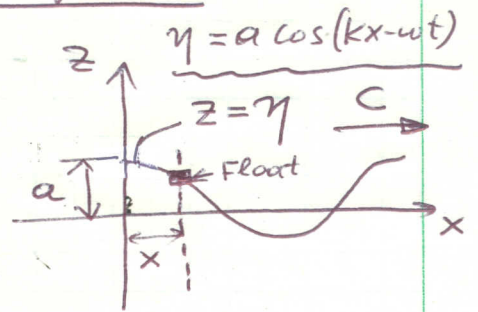 η = a cos(kx-ωt)
z
C
z = η
Float
a
x
x